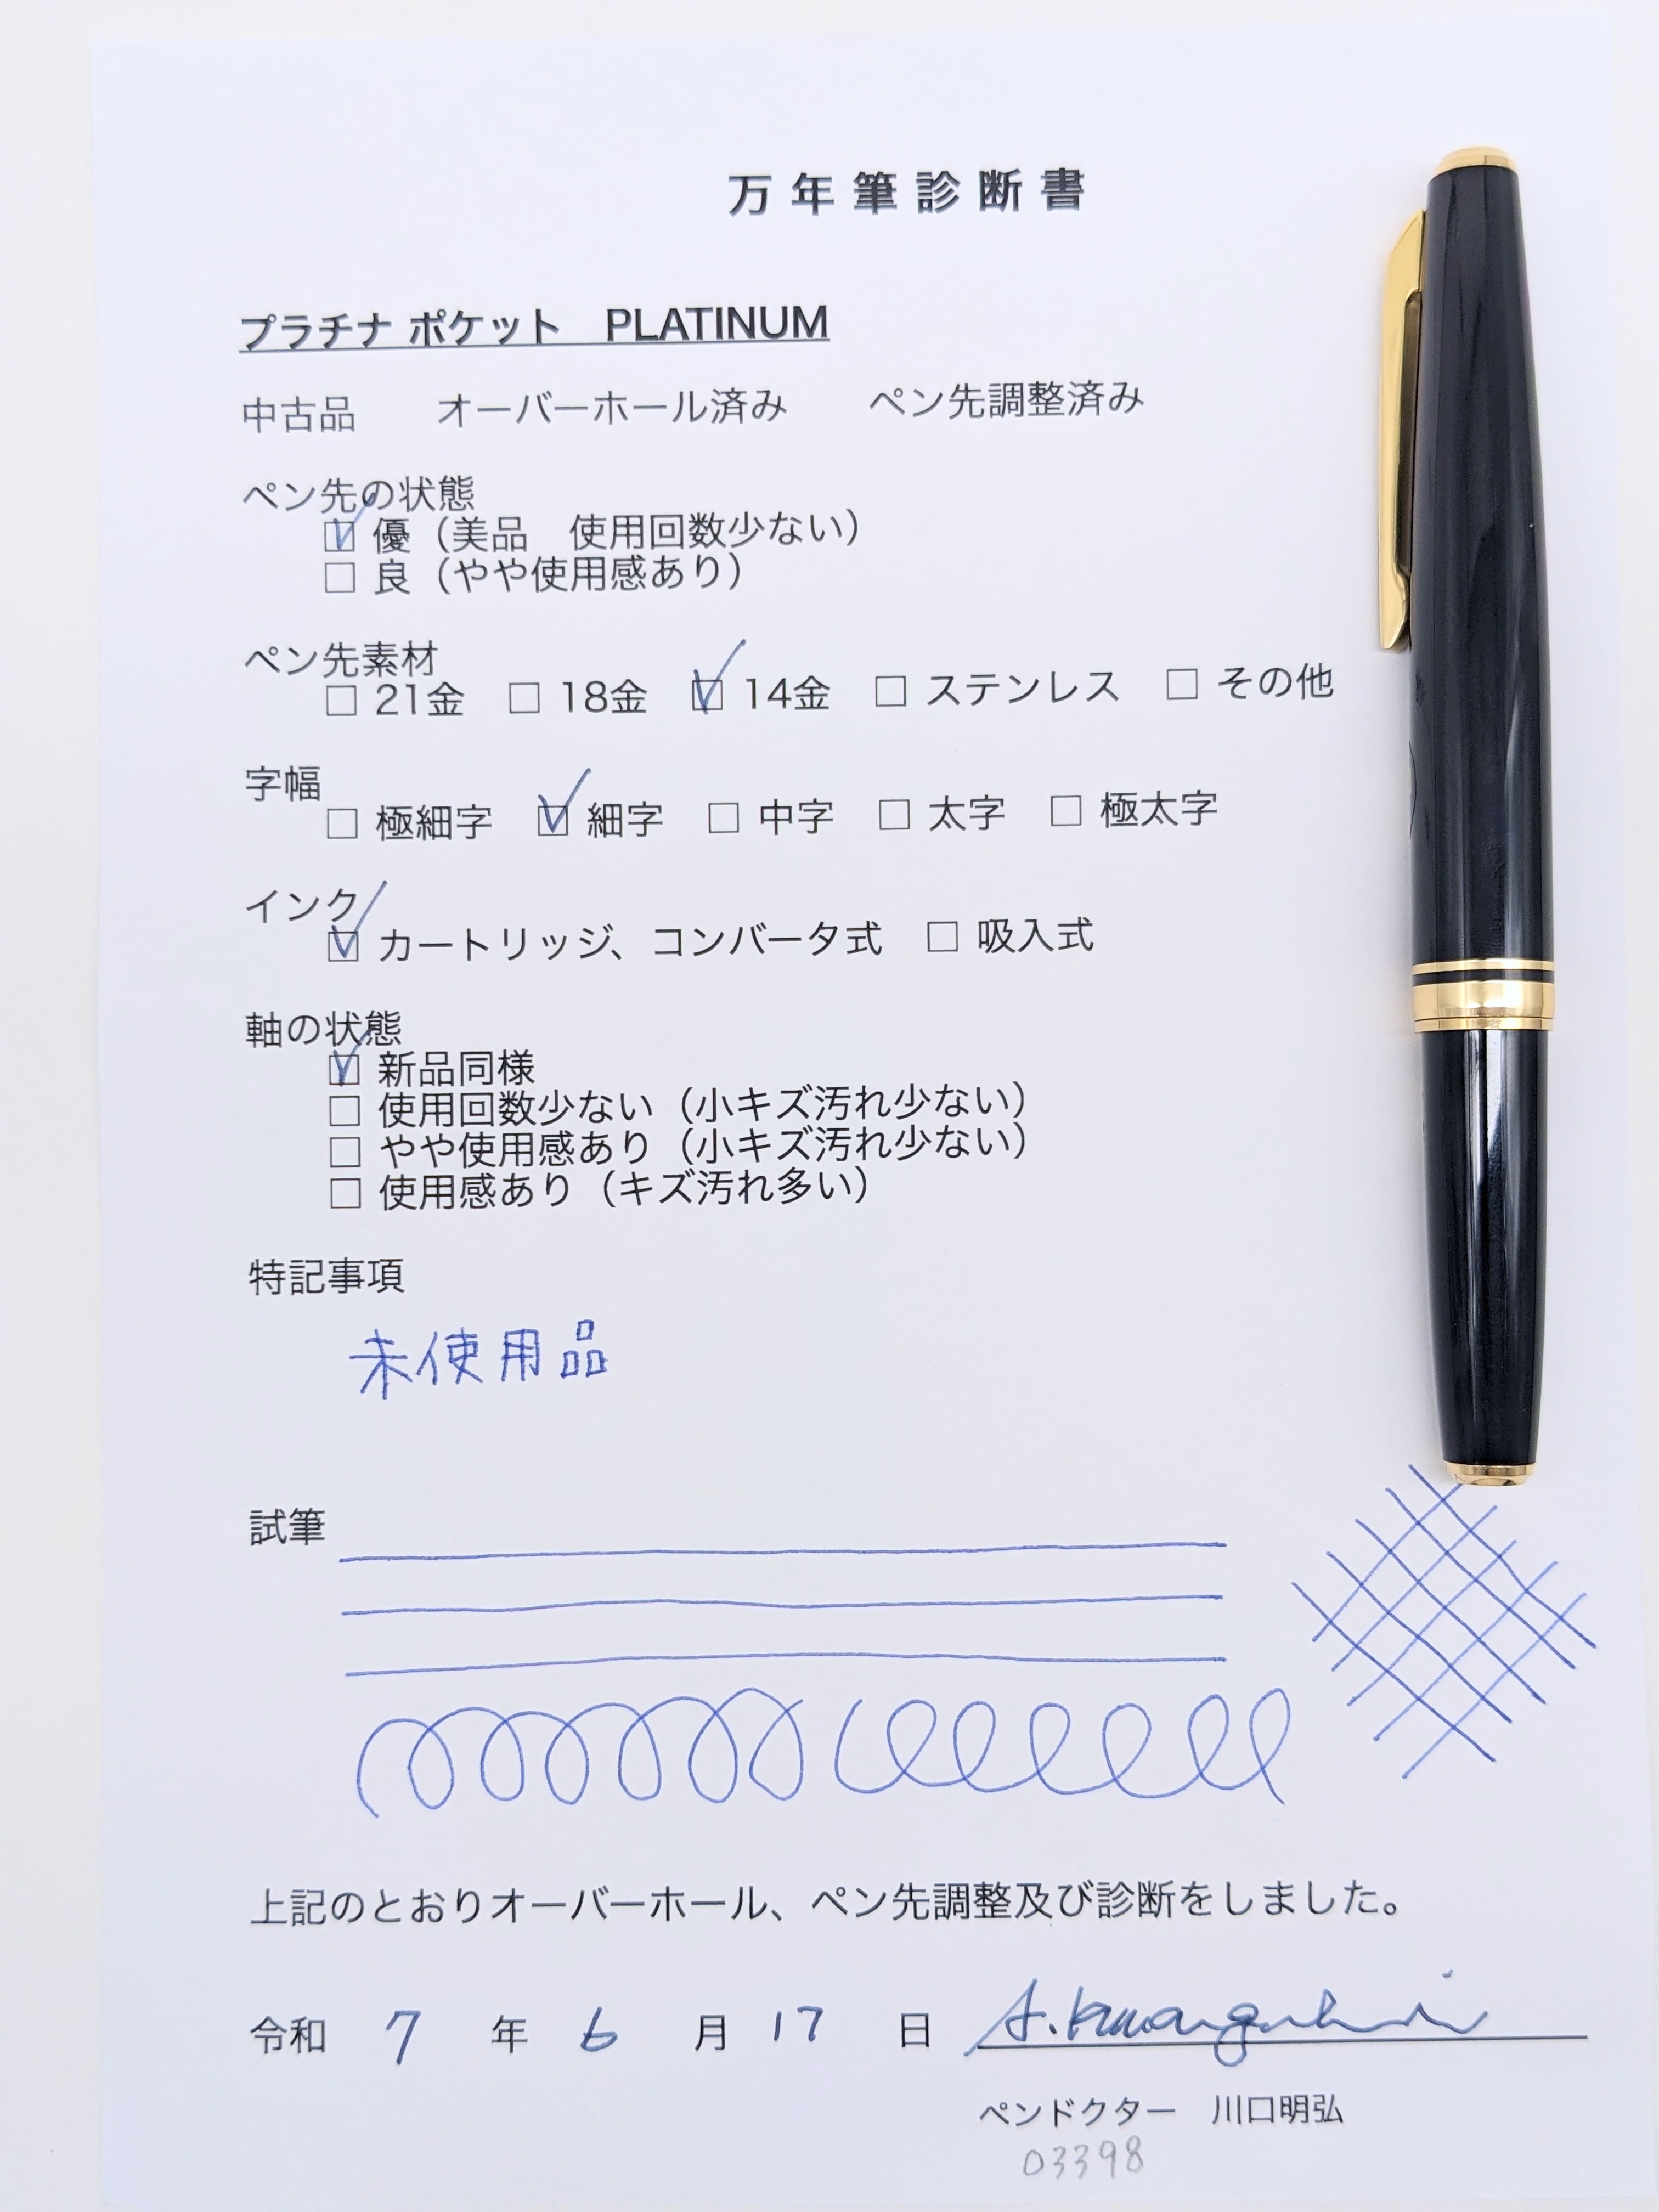 万年筆診断書
プラチナ ポケット　PLATINUM
中古品　　オーバーホール済み　　ペン先調整済み
ペン先の状態
☑ 優（美品　使用回数少ない）
□ 良（やや使用感あり）
ペン先素材
□ 21金　□ 18金　☑ 14金　□ ステンレス　□ その他
字幅
□ 極細字　☑ 細字　□ 中字　□ 太字　□ 極太字
インク
☑ カートリッジ、コンバータ式　□ 吸入式
軸の状態
☑ 新品同様
□ 使用回数少ない（小キズ汚れ少ない）
□ やや使用感あり（小キズ汚れ少ない）
□ 使用感あり（キズ汚れ多い）
特記事項
未使用品
試筆
上記のとおりオーバーホール、ペン先調整及び診断をしました。
令和 7 年 6 月 17 日 A.Kawaguchi
ペンドクター　川口明弘
03398